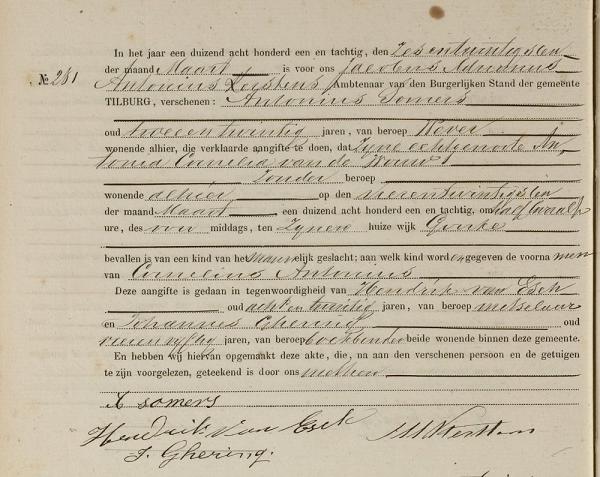 In het jaar een duizend acht honderd een en tachtig, den zesentwintigsten
der maand Maart is voor ons Jacobus Adrianus
№ 281 Antonius Kerstens Ambtenaar van den Burgerlijken Stand der gemeente
TILBURG, verschenen: Antonius Somers
oud twee en twintig jaren, van beroep Wever
wonende alhier, die verklaarde aangifte te doen, dat Zijne echtgenoote An-
tonia Cornelia van de Wouw
Zonder beroep
wonende alhier op den vierentwintigsten
der maand Maart, een duizend acht honderd een en tachtig, om half twaalf
ure, des voor middags, ten Zijnen huize wijk Goirke
bevallen is van een kind van het Mannelijk geslacht; aan welk kind worden gegeven de voornamen
van Cornelius Antonius
Deze aangifte is gedaan in tegenwoordigheid van Hendrik van Esch
oud acht en twintig jaren, van beroep metselaar
en Johannes Ghering oud
vierenvijftig jaren, van beroep boekbinder beide wonende binnen deze gemeente.
En hebben wij hiervan opgemaakt deze akte, die, na aan den verschenen persoon en de getuigen
te zijn voorgelezen, geteekend is door ons met hen
A somers
Hendrik Van Esch
J. Ghering.